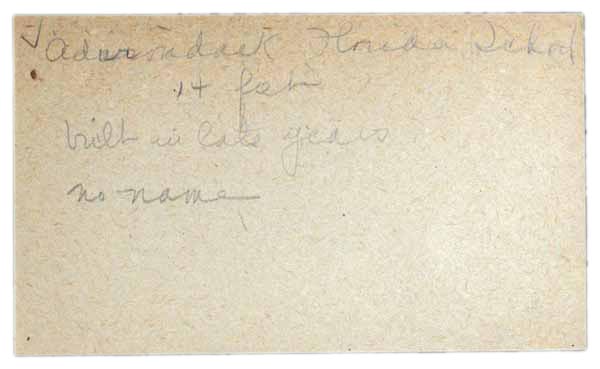 Adirondack Florida School
14 feet
built in late years
no name